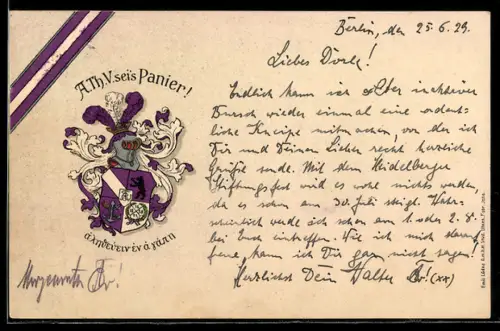 Berlin, den 25.6.29.
A.Th.V. sei's Panier!
Lieber
Endlich kann ich als
Bursch wieder einmal eine ordent-
liche Kneipe mitmachen, von der ich
Dir und Deinen Lieben recht herzliche
Grüße sende. Mit dem Heidelberger
Stiftungsfest wird es wohl nichts werden,
da es schon am 30. Juli steigt. Wahr-
scheinlich werde ich schon am 1. oder 2. 8.
bei Euch eintreffen. Wie ich mich darauf
freue, kann ich Dir gar nicht sagen!
Herzlichst Dein Walter (xx)
ἀληθεύειν ἐν ἀγάπῃ